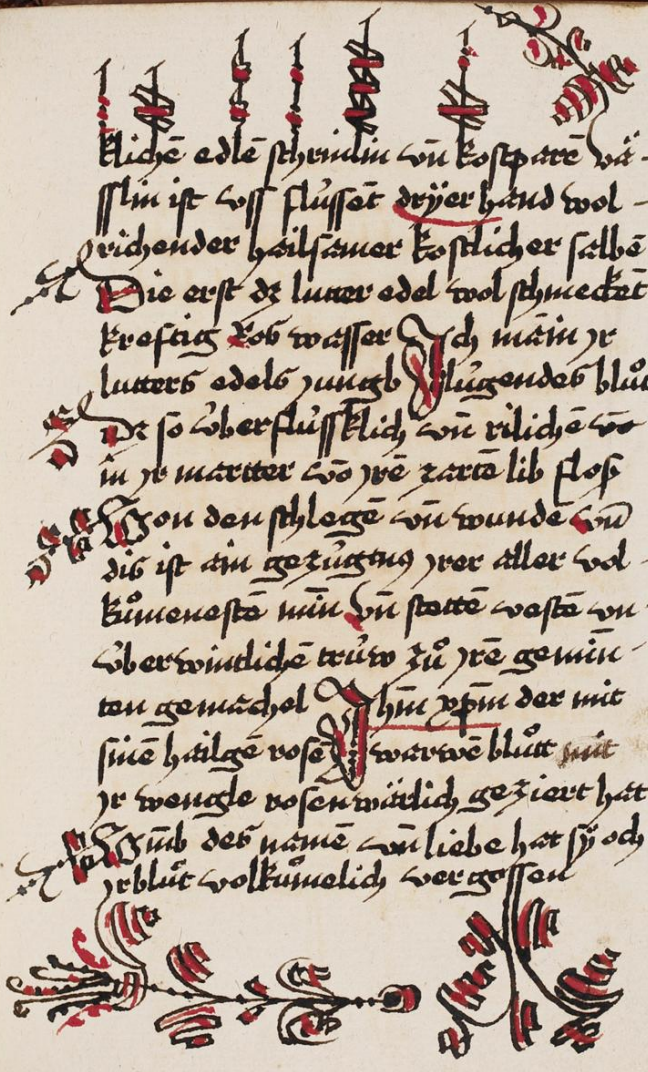 klichē edlē schrinlin vn̄ kostparē vä-
sslin ist vss flússet drÿer hand wol-
richender hailsamer kostlicher salbē
Die erst dz lutter edel wol schmecket
kreftig Ros wasser Ich main jr
lutters edels jungs flúgendes blůt
Dz so v́berflússklich vn̄ rilichē
in jr martter vō jrē zartē lib flos
Von den schlegē vn̄ wundē vn̄
dis ist ain gezúgnus jrer aller vol-
kůmenestē min̄ vn̄ stettē vestē vn
v́berwintlichē trúw zů jrē gemin̄-
ten gemachel Ihm̄ xp̄m der mit
sinē hailgē rosē warwē blůtt mit
jr wengle rosenwärlich geziert hat
Vm̄b des namē vn̄ liebe hat sÿ och
jr blůt volkům̄elich vergossen